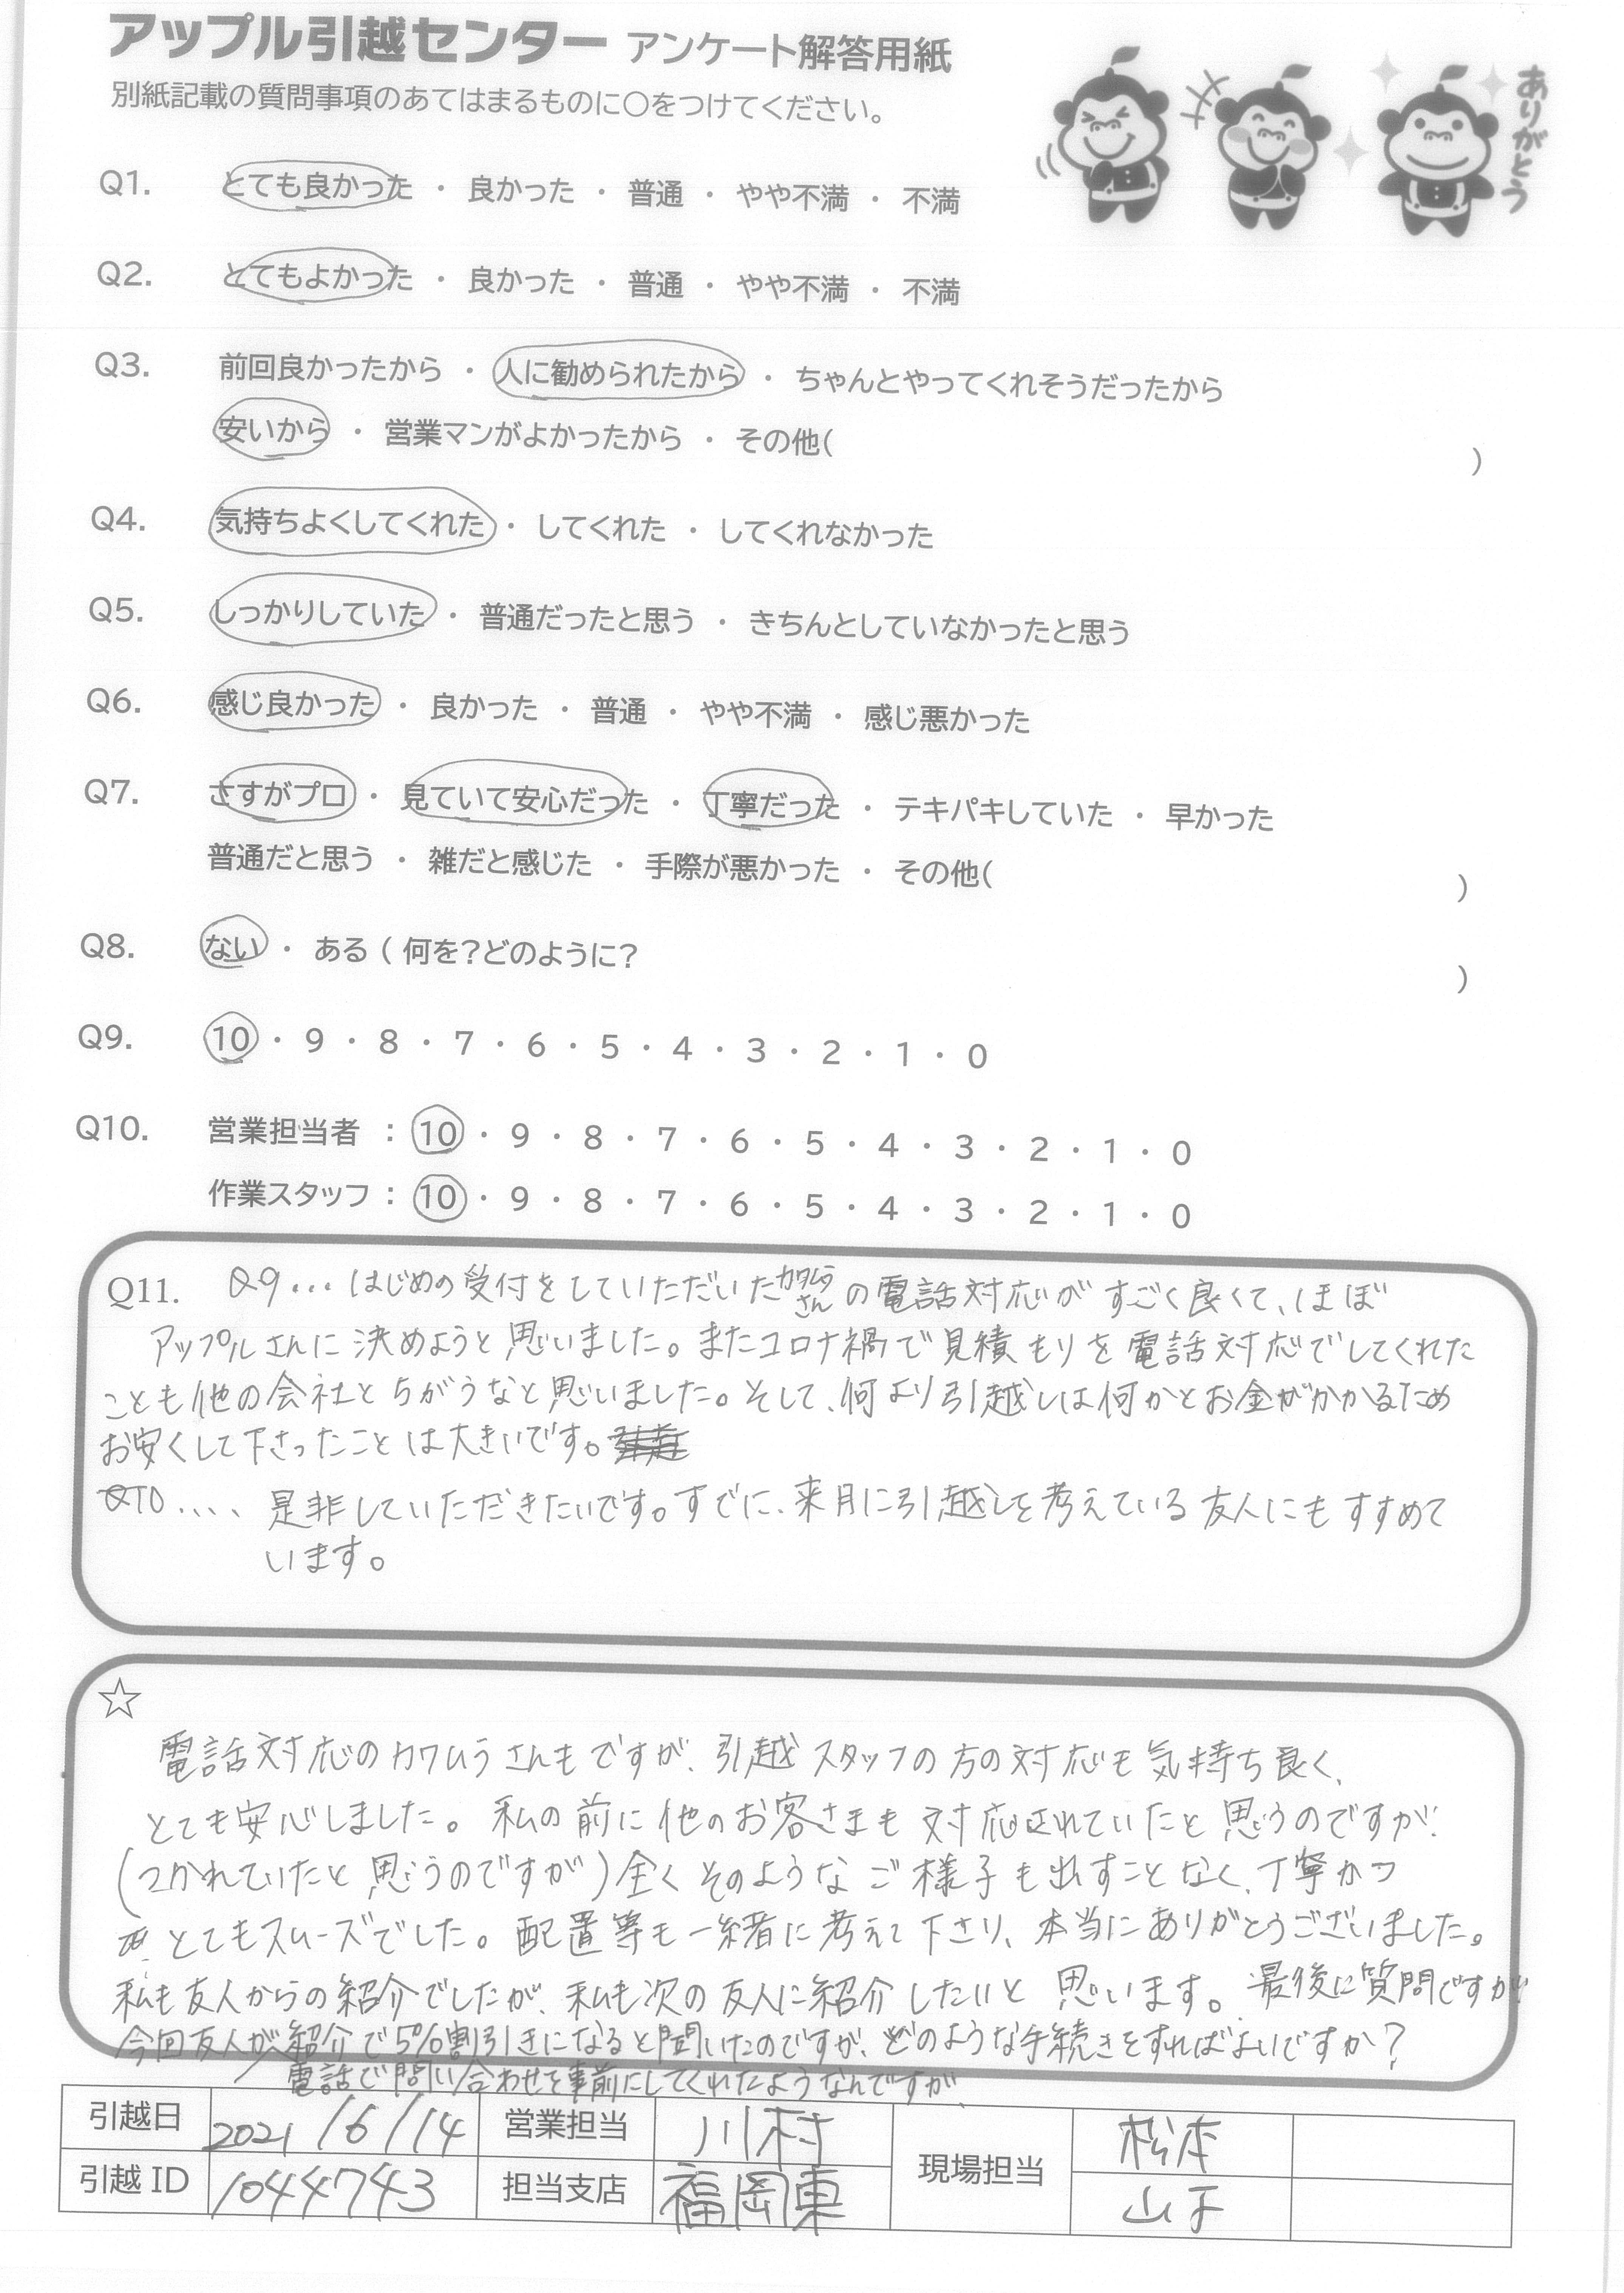 アップル引越センター アンケート解答用紙
別紙記載の質問事項のあてはまるものに〇をつけてください。
ありがとう
Q1. とても良かった ・ 良かった ・ 普通 ・ やや不満 ・ 不満
Q2. とてもよかった ・ 良かった ・ 普通 ・ やや不満 ・ 不満
Q3. 前回良かったから ・ 人に勧められたから ・ ちゃんとやってくれそうだったから
安いから ・ 営業マンがよかったから ・ その他( )
Q4. 気持ちよくしてくれた ・ してくれた ・ してくれなかった
Q5. しっかりしていた ・ 普通だったと思う ・ きちんとしていなかったと思う
Q6. 感じ良かった ・ 良かった ・ 普通 ・ やや不満 ・ 感じ悪かった
Q7. さすがプロ ・ 見ていて安心だった ・ 丁寧だった ・ テキパキしていた ・ 早かった
普通だと思う ・ 雑だと感じた ・ 手際が悪かった ・ その他( )
Q8. ない ・ ある ( 何を?どのように? )
Q9. 10 ・ 9 ・ 8 ・ 7 ・ 6 ・ 5 ・ 4 ・ 3 ・ 2 ・ 1 ・ 0
Q10. 営業担当者 : 10 ・ 9 ・ 8 ・ 7 ・ 6 ・ 5 ・ 4 ・ 3 ・ 2 ・ 1 ・ 0
作業スタッフ : 10 ・ 9 ・ 8 ・ 7 ・ 6 ・ 5 ・ 4 ・ 3 ・ 2 ・ 1 ・ 0
Q11. Q9... はじめの受付をしていただいたカワムラさんの電話対応がすごく良くて、ほぼ
アップルさんに決めようと思いました。またコロナ禍で見積もりを電話対応でしてくれた
ことも他の会社とちがうなと思いました。そして、何より引越しは何かとお金がかかるため
お安くして下さったことは大きいです。
Q10.... 是非していただきたいです。すでに、来月に引越しを考えている友人にもすすめて
います。
☆
電話対応のカワムラさんもですが、引越スタッフの方の対応も気持ち良く、
とても安心しました。私の前に他のお客さまも対応されていたと思うのですが、
(つかれていたと思うのですが)全くそのようなご様子も出すことなく、丁寧かつ
とてもスムーズでした。配置等も一緒に考えて下さり、本当にありがとうございました。
私も友人からの紹介でしたが、私も次の友人に紹介したいと思います。最後に質問ですが
今回友人が紹介で5%割引きになると聞いたのですが、どのような手続きをすればよいですか?
電話で問い合わせを事前にしてくれたようなんですが、
引越日 2021/6/14 営業担当 川村 現場担当 松本
引越ID 1044743 担当支店 福岡東 山下